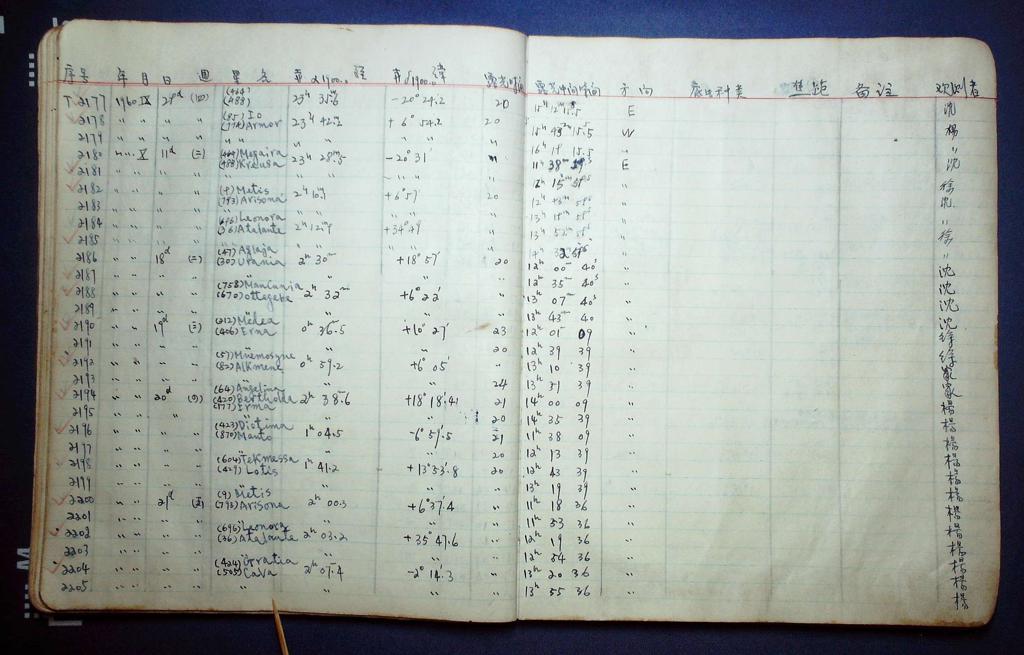 序号 年 月 日 週 星名 赤α1900.0 经 赤δ1900.0 纬 露光时间 露光中间时间 方向 底片种类 焦距 备注 观测者
T 2177 1960 IX 29d (四) (464) (488) 23h 35.6 -20° 24.2 20 15h 12m 15.5 E 沈
2178 " " " " (85) Io 23h 42.2 +6° 54.2 20 15h 43m 15.5 W 楊
2179 " " " " " " " 16h 19 15.5 "
2180 " X 11d (二) Megaira (488) Kreusa 23h 28m.5 -20° 31' " 11h 38m E 沈
2181 " " " " " " " 12h 15m "
2182 " " " " (9) Metis (793) Arisona 2h 10.1 +6° 57' 20 12h "
2183 " " " " " " " 13h "
2184 " " " " (696) Leonora (36) Atalante +34° 49 13h 52m " 徐
2185 " " " " " " " "
2186 " " 18d (二) (47) Aglaja (30) Urania 2h 30m +18° 57' 20 12h 00m 40s " 沈
2187 " " " " " " " 12h 35m 40s " 沈
2188 " " " " (758) Mancunia (670) Ottegebe 2h 32m +6° 22' " 13h 07m 40s " 沈
2189 " " " " " " " 13h 43m 40 " 沈
2190 " " 19d (三) (212) Medea (406) Erna 0h 36.5 +10° 27' 23 12h 01m 09 " 徐
2191 " " " " " " 20 12h 39 39 " 徐
2192 " " " " (57) Mnemosyne (82) Alkmene 0h 59.2 +6° 05' " 13h 10 39 "
2193 " " " " " " 24 13h 31 39 "
2194 " " 20d (四) (64) Angelina (420) Bertholda (177) Irma 2h 38.6 +18° 18'.41 21 14h 00 09 " 楊
2195 " " " " " " 20 14h 35 39 " 楊
2196 " " " " (423) Diotima (870) Manto 1h 04.5 -6° 59'.5 21 11h 38 09 " 楊
2197 " " " " " " 20 12h 13 39 " 楊
2198 " " " " (604) Tekmessa (429) Lotis 1h 41.2 +13° 53'.8 20 12h 43 39 " 楊
2199 " " " " " " " 13h 19 39 " 楊
2200 " " 21d (五) (9) Metis (793) Arisona 2h 00.3 +6° 37.4 " 11h 18 36 " 楊
2201 " " " " " " " 11h 53 36 " 楊
2202 " " " " (696) Leonora (36) Atalante 2h 03.2 +35° 47.6 " 12h 19 36 " 楊
2203 " " " " " " " 12h 54 36 " 楊
2204 " " " " (424) Gratia (505) Cava 2h 07.4 -2° 14'.3 " 13h 20 36 " 楊
2205 " " " " " " " 13h 55 36 " 楊